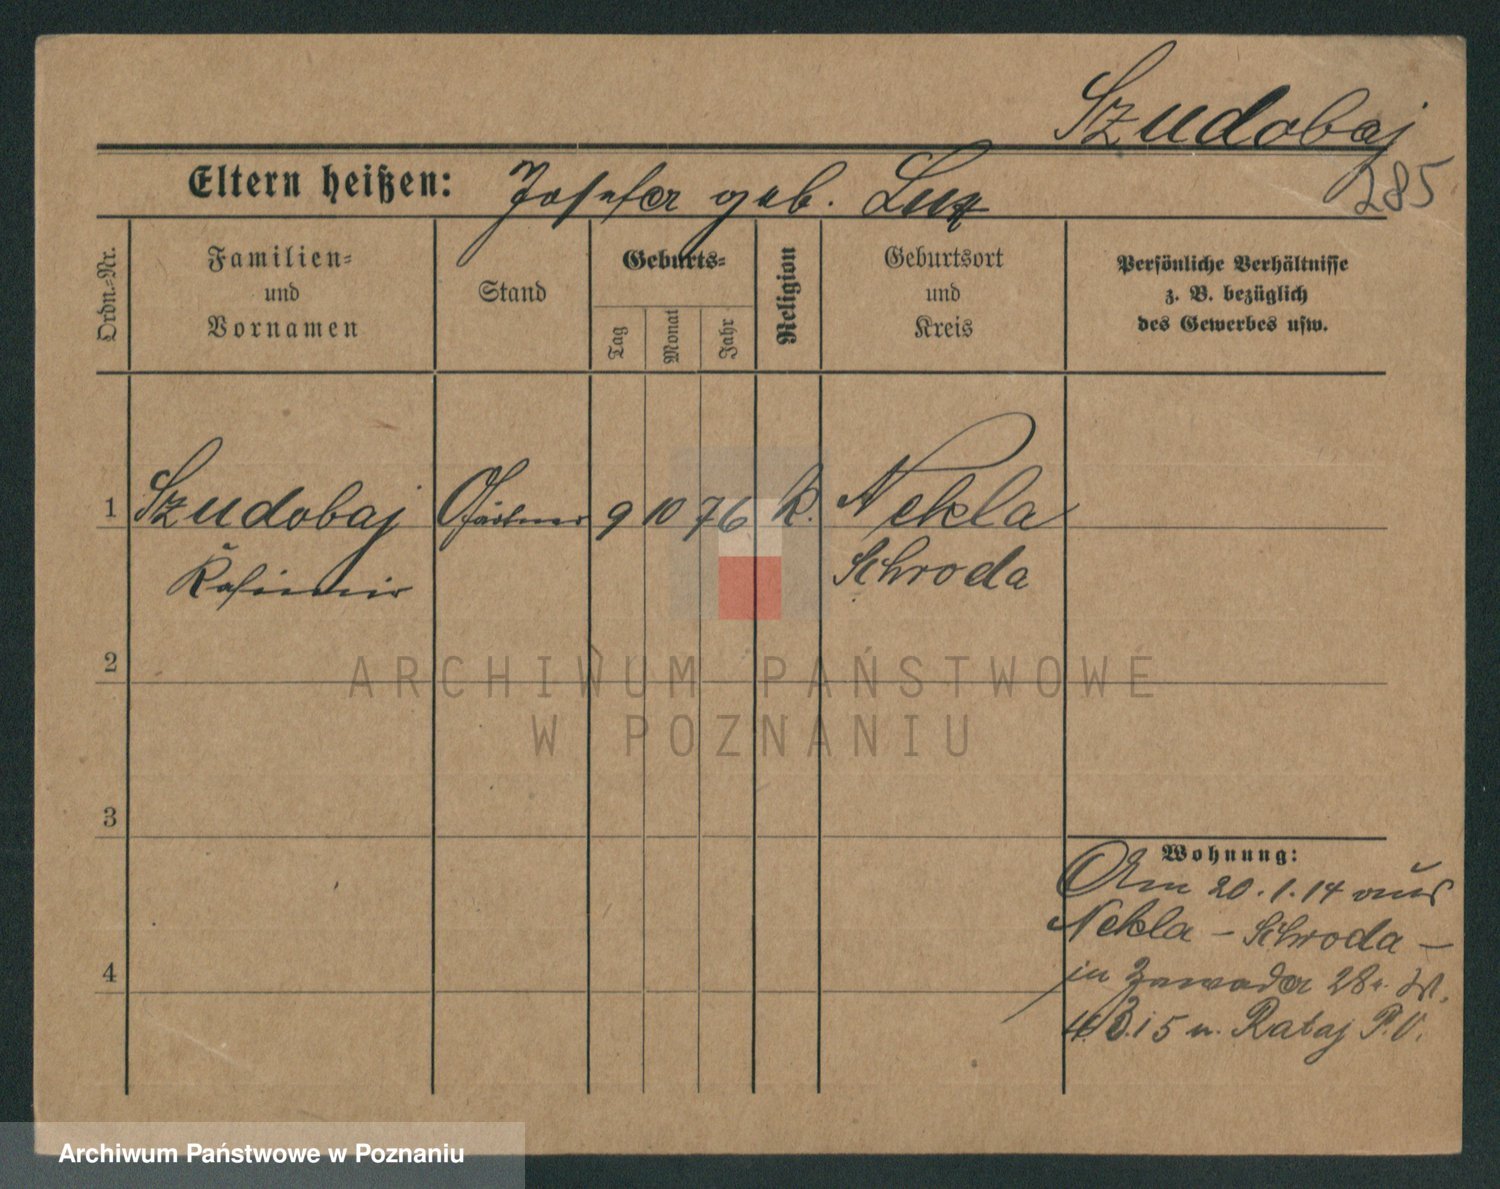 Szudobaj
285
Eltern heißen: Josefa geb. Luz
Ordn.-Nr.
Familien-
und
Vornamen
Stand
Geburts-
Tag
Monat
Jahr
Religion
Geburtsort
und
Kreis
Persönliche Verhältnisse
z. B. bezüglich
des Gewerbes usw.
1 Szudobaj Gärtner 9 10 76 k. Nekla
Kasimir Schroda
2
ARCHIWUM PAŃSTWOWE
W POZNANIU
3
Wohnung:
Am 20.1.14 aus
Nekla - Schroda -
in Zawade 28
4
5 n. Rataj P.O.
Archiwum Państwowe w Poznaniu